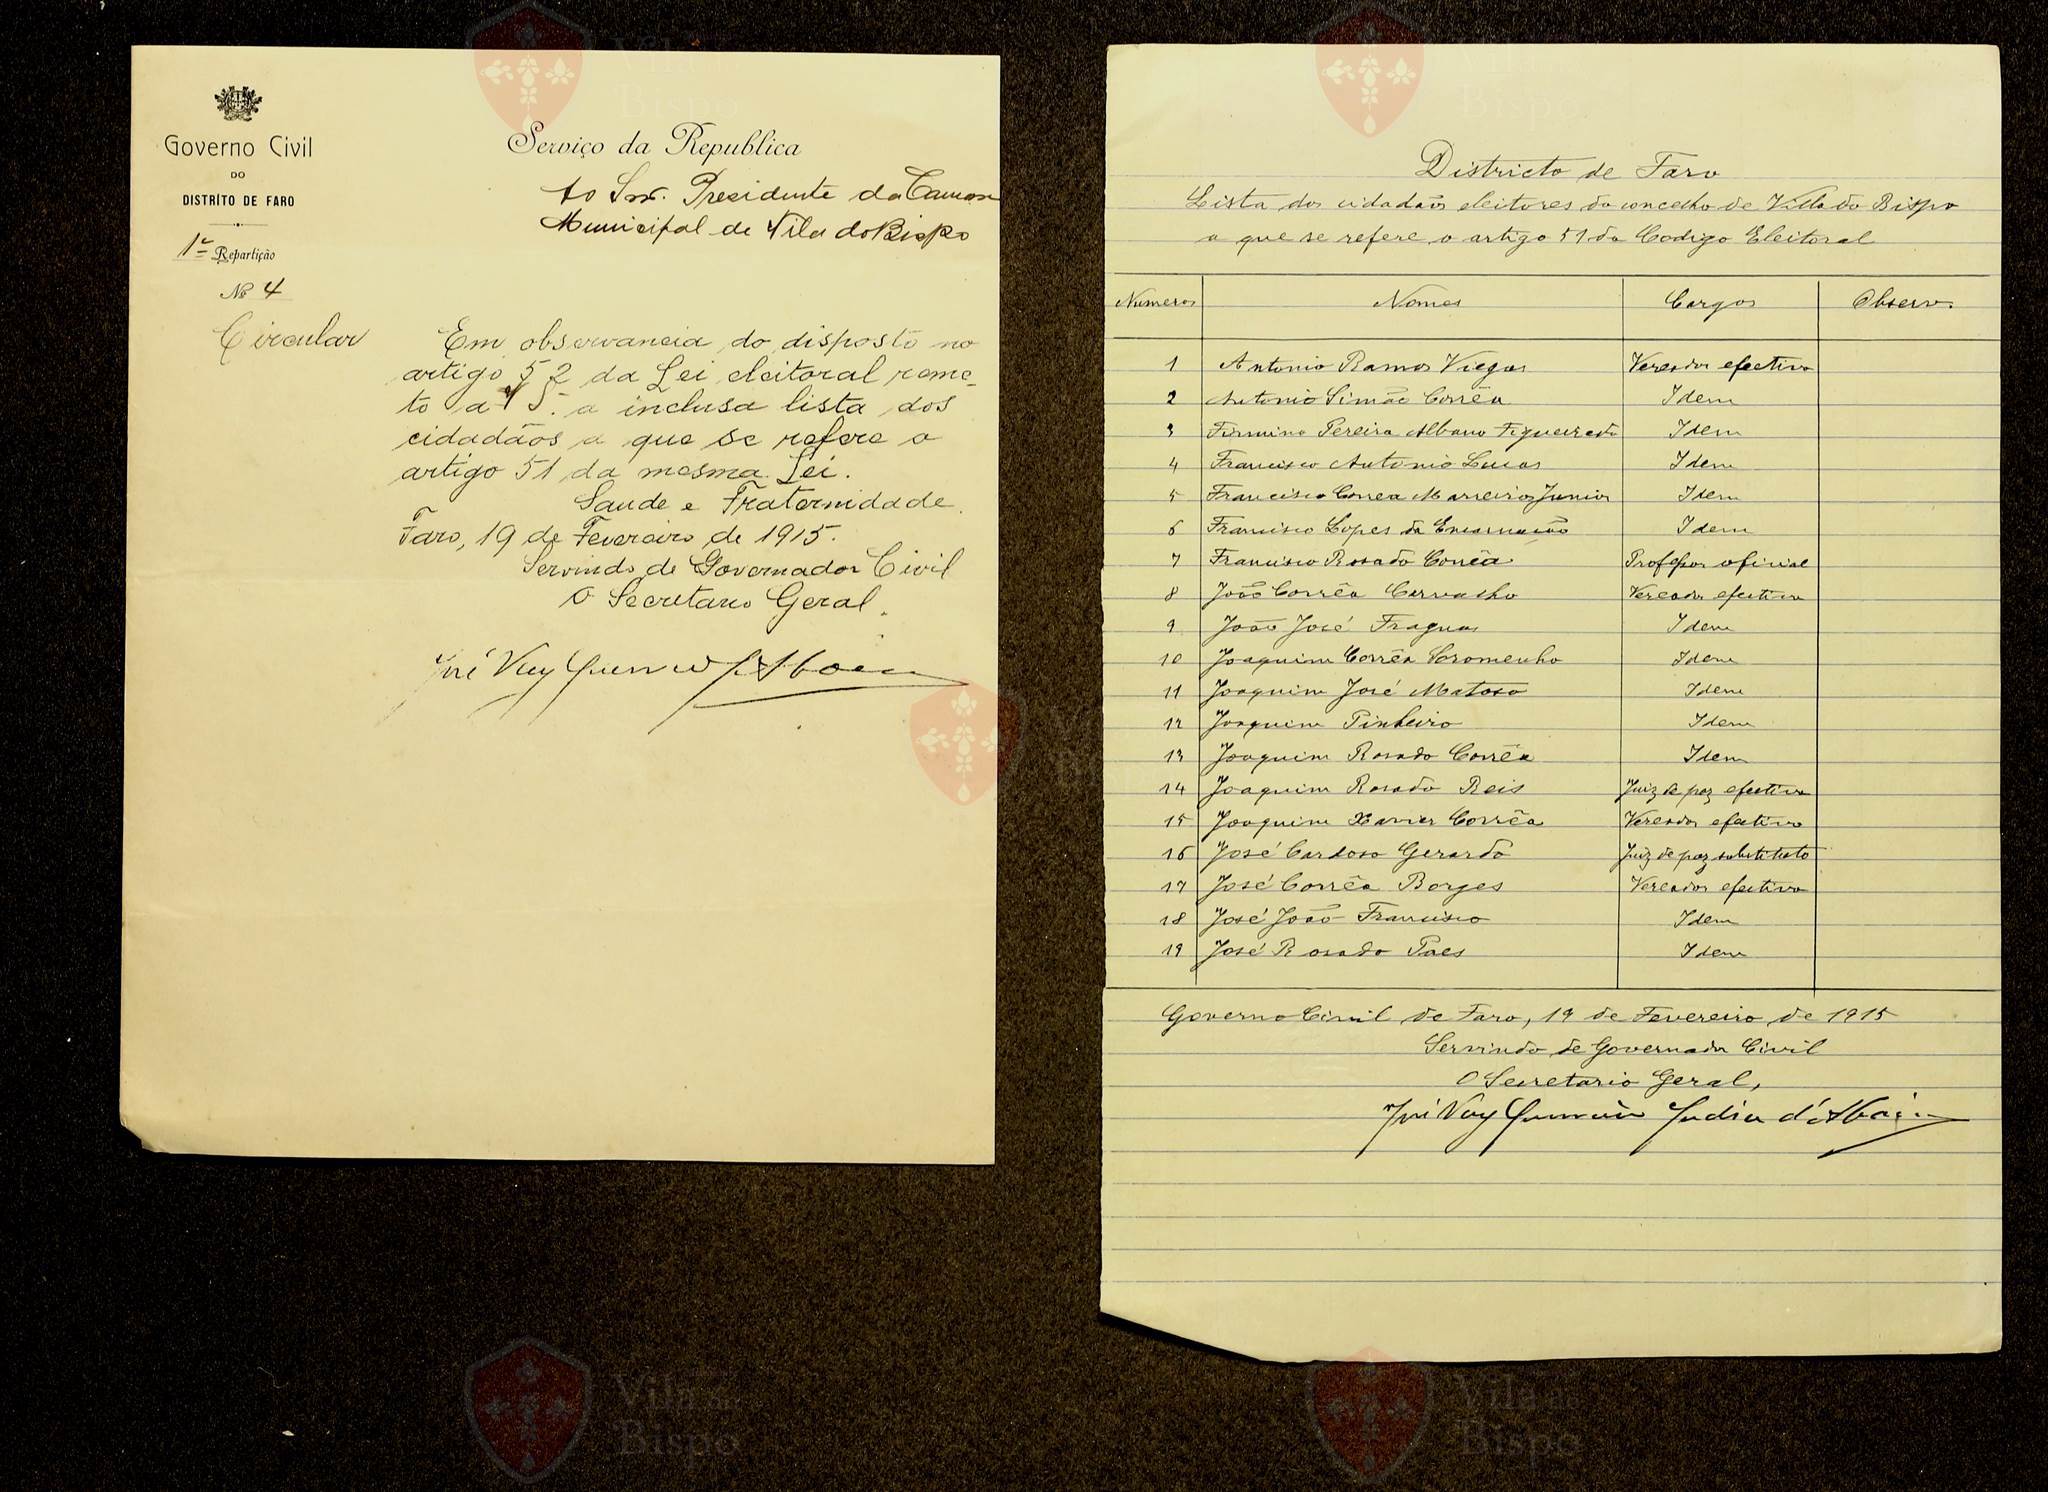 Governo Civil
DO
DISTRÍTO DE FARO
1ª Repartição
Nº 4
Circular
Serviço da Republica
Ao Snr. Presidente da Camara
Municipal de Vila do Bispo
Em observancia do disposto no
artigo 52 da Lei eleitoral reme-
to a V. a inclusa lista dos
cidadãos a que se refere o
artigo 51 da mesma Lei.
Saude e Fraternidade.
Faro, 19 de Fevereiro de 1915.
Servindo de Governador Civil
O Secretario Geral.
José Vay
Districto de Faro
Lista dos cidadãos eleitores do concelho de Villa do Bispo
a que se refere o artigo 51 do Codigo Eleitoral
Numeros Nomes Cargos Observ.
1 Antonio Ramos Viegas Vereador efectivo
2 Antonio Simão Corrêa Idem
3 Firmino Pereira Albano Figueiredo Idem
4 Francisco Antonio Lucas Idem
5 Francisco Correa Marreiros Junior Idem
6 Francisco Lopes da Encarnação Idem
7 Francisco Rosado Corrêa Professor oficial
8 João Corrêa Carvalho Vereador efectivo
9 João José Fraguas Idem
10 Joaquim Corrêa Soromenho Idem
11 Joaquim José Matoso Idem
12 Joaquim Pinheiro Idem
13 Joaquim Rosado Corrêa Idem
14 Joaquim Rosado Reis Juiz de paz efectivo
15 Joaquim Xavier Corrêa Vereador efectivo
16 José Cardoso Gerardo Juiz de paz substituto
17 José Corrêa Borges Vereador efectivo
18 José João Francisco Idem
19 José Rosado Paes Idem
Governo Civil de Faro, 19 de Fevereiro de 1915
Servindo de Governador Civil
O Secretario Geral,
José Vay
Vila do
Bispo
Vila do
Bispo